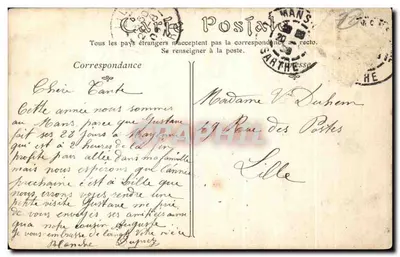 C Postale
Tous les pays étrangers n'acceptent pas la correspondance au recto.
Se renseigner à la poste.
MANS
SARTHE
Correspondance
Chère Tante
Cette année nous sommes
au Mans parce que Gustave
fait ses 28 jours à
qui est à 2 heures de la
profite pas allée dans ma famille
mais nous espérons que l'année
prochaine c'est à Lille que
nous irons vous rendre une
petite visite Gustave me prie
de vous envoyer ses amitiés ainsi
qu'à notre cousin Auguste
Je vous embrasse de loin votre nièce
Blanche Dupuez
Madame Ve Duhem
49 Rue des Postes
Lille